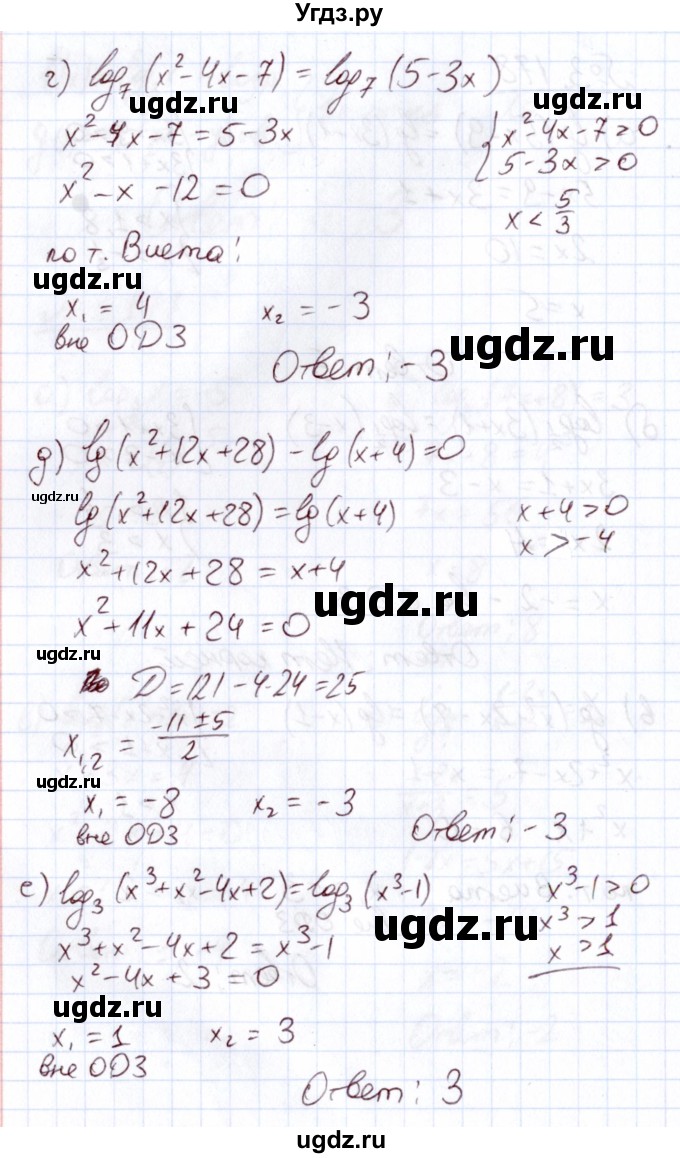 Угдз.ру
г) log₇(x²-4x-7) = log₇(5-3x)
ugdz.ru
ugdz.ru
x²-4x-7 = 5-3x
{ x²-4x-7>0
5-3x>0
x²-x-12=0
x < 5/3
по т. Виета:
ugdz.ru
x₁ = 4
x₂ = -3
вне ОДЗ
ugdz.ru
Ответ: -3
д) lg(x²+12x+28) - lg(x+4)=0
ugdz.ru
lg(x²+12x+28) = lg(x+4)
x+4>0
x>-4
x²+12x+28 = x+4
ugdz.ru
x²+11x+24=0
ugdz.ru
D=121-4·24=25
x₁,₂ = (-11±5)/2
ugdz.ru
x₁ = -8
x₂ = -3
вне ОДЗ
Ответ: -3
е) log₃(x³+x²-4x+2)=log₃(x³-1)
x³-1>0
ugdz.ru
x³>1
x³+x²-4x+2 = x³-1
x>1
x²-4x+3=0
ugdz.ru
x₁ = 1
x₂ = 3
вне ОДЗ
ugdz.ru
Ответ: 3
ugdz.ru